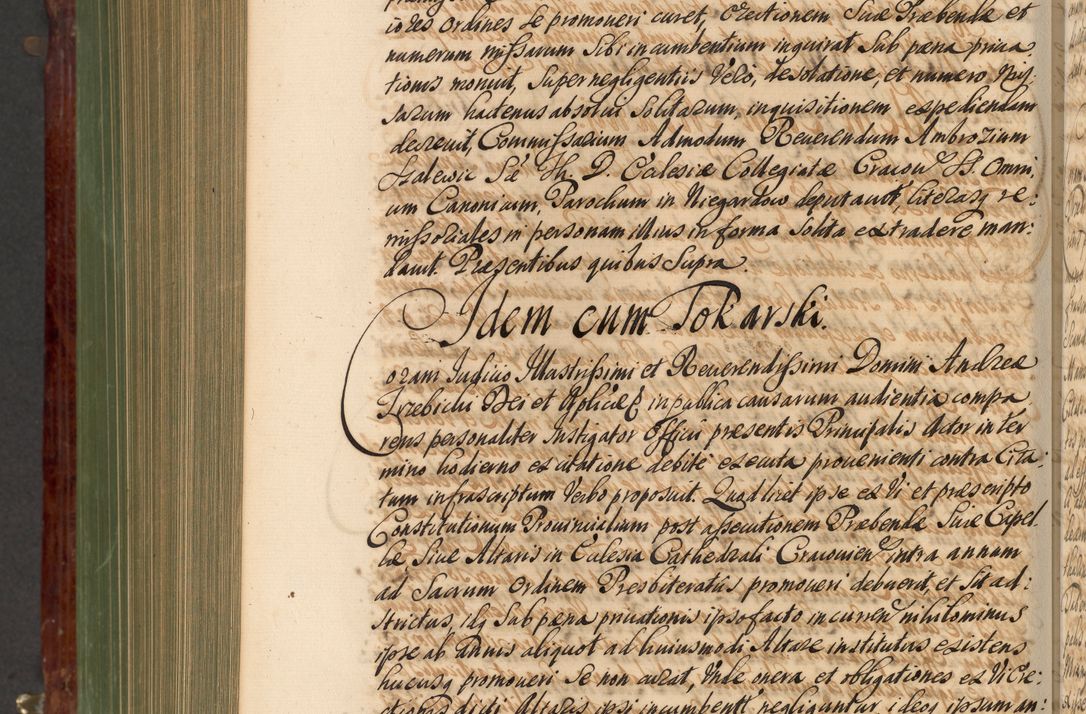 iores Ordines se promoveri curet, Erectionem Suæ Præbendæ et
numerum missarum sibi incumbentium inquirat sub pæna priva
tionis monuit, super negligentiis Vero, desolatione, et numero Mis-
sarum hactenus absolvi solitarum, inquisitionem expediendam
decrevit, Commissarium Admodum Reverendum Ambrozium
Ecclesiæ Collegiatæ Cracov. SS. Omni
um Canonicum, Parochum in Niegardow deputavit, literasq re:
missoriales in personam illius in forma solita extradere man:
davit. Præsentibus quibus Supra.
Idem cum Tokarski.
Coram Judicio Illustrissimi et Reverendissimi Domini Andreæ
Trzebicki Dei et Aplicæ in publica causarum audientia compa
rens personaliter Instigator Officii præsentis Principalis Actor in ter
mino hodierno ex citatione debité executa provenienti contra Cita:
tum infrascriptum Verbo proposuit. Quod licet ipse ex Vi et præscripto
Constitutionum Provincialium post assecutionem Præbendæ Suæ Capel
læ, Sive Altaris in Eclesia Cathedrali Cracovien intra annum
ad Sacrum Ordinem Presbiteratus promoveri debuerit, et sit ad:
strictus, idq sub pæna privationis ipso facto incurren nihilominus
ipse ab Annis aliquot ad huiusmodi Altare institutus existens
hucusq promoveri se non curat, Unde onera et obligationes ex Vi Ere:
ctionis dicti Altaris ipsi incumbent negliguntur ideoq ipsum an: